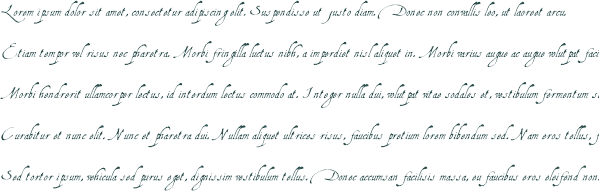 Lorem ipsum dolor sit amet, consectetur adipiscing elit. Suspendisse ut justo diam. Donec non convallis leo, ut laoreet arcu.
Etiam tempor vel risus nec pharetra. Morbi fringilla luctus nibh, a imperdiet nisl aliquet in. Morbi varius augue ac augue volutpat faci
Morbi hendrerit ullamcorper lectus, id interdum lectus commodo at. Integer nulla dui, volutpat vitae sodales et, vestibulum fermentum s
Curabitur et nunc elit. Nunc et pharetra dui. Nullam aliquet ultrices risus, faucibus pretium lorem bibendum sed. Nam eros tellus, f
Sed tortor ipsum, vehicula sed purus eget, dignissim vestibulum tellus. Donec accumsan facilisis massa, eu faucibus eros eleifend non.